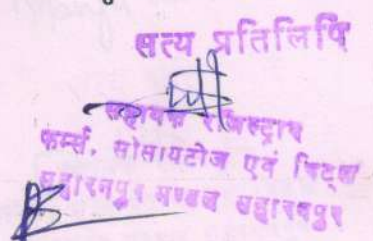 सत्य प्रतिलिपि
सहायक रजिस्ट्रार
फर्म्स, सोसायटीज एवं चिट्स
सहारनपुर मण्डल सहारनपुर